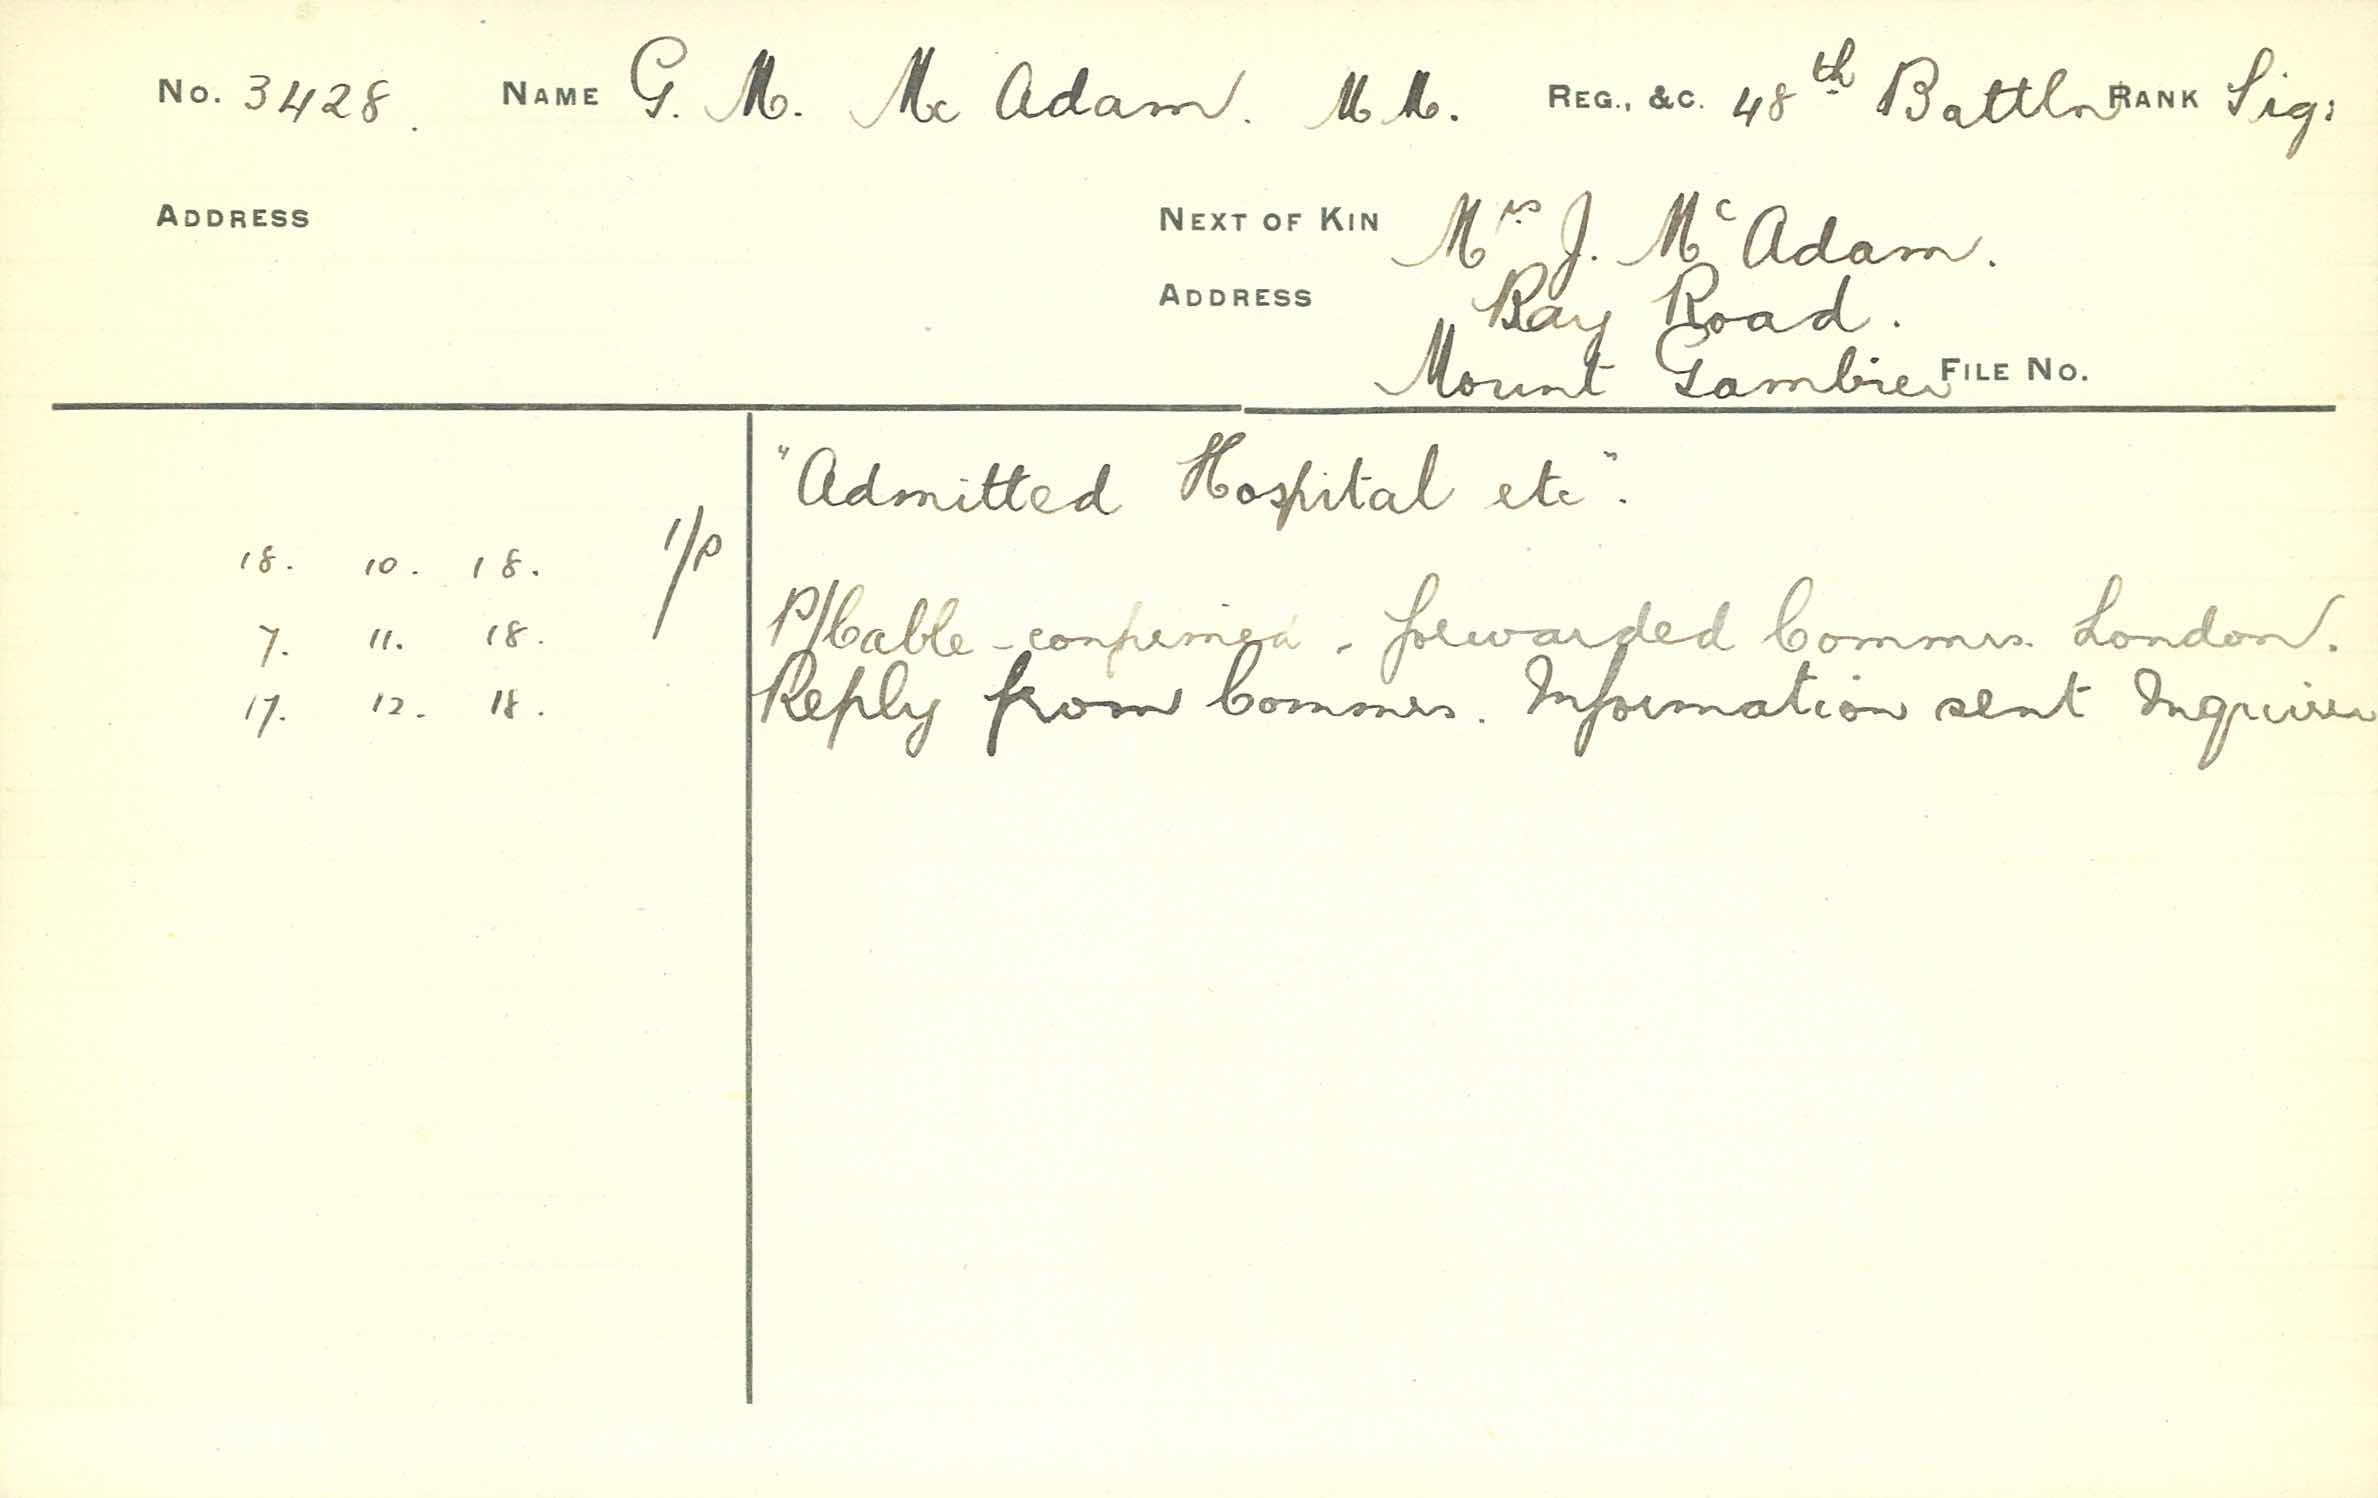 No. 3428. NAME G. M. Mc Adam. M M. REG., &C. 48th Battln RANK Sig:
ADDRESS NEXT OF KIN Mrs J. Mc Adam.
ADDRESS Bay Road.
Mount Gambier FILE No.
"Admitted Hospital etc".
18. 10. 18. 1/P
7. 11. 18. P/Cable - confirmed - forwarded Commrs. London.
17. 12. 18. Reply from Commrs. Information sent Inquirer